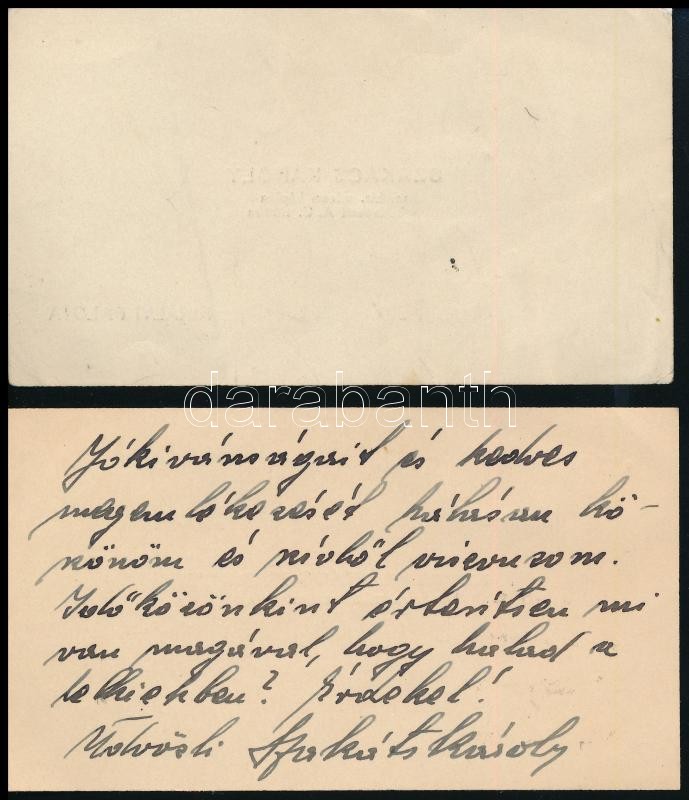 darabanth
Jókívánságait és kedves
megemlékezését hálásan kö-
szönöm és szívből viszonzom.
Időközönkint értesítsen mi
van magával, hogy halad a
lelkiekben? Érdekel!
Üdvözli Szakáts Károly